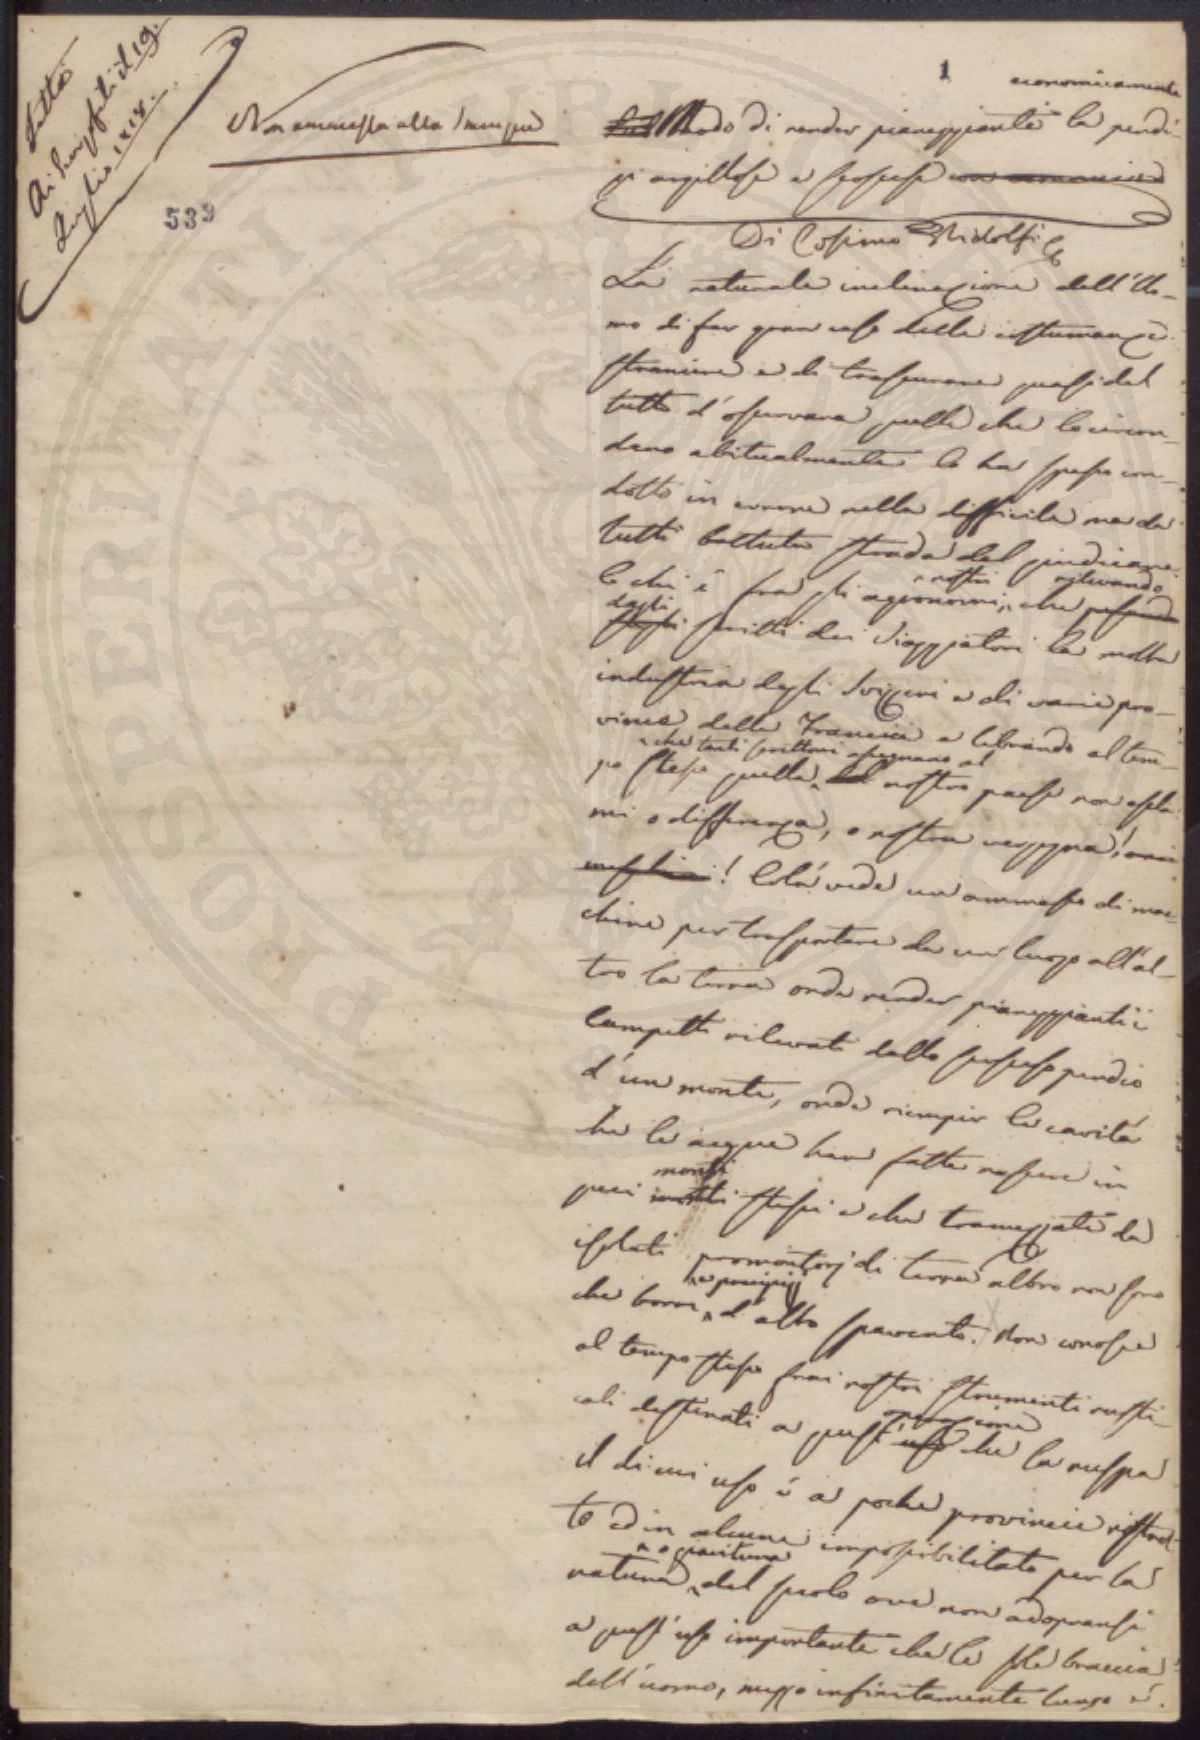 Letta
Ai Georgofili il 19.
Luglio 1818.
Non ammessa alla Stampa
539
1
economicamente
Modo di render pianeggianti le pendi-
ci argillose e scoscese con economia
Di Cosimo Ridolfi
La naturale inclinazione dell'Uo-
mo di far gran caso delle costumanze
straniere e di trascurare quasi del
tutto d'osservare quelle che lo circon-
dano abitualmente lo ha spesso con-
dotto in errore nella difficile ma da
tutti battuta strada del giudicare.
nostri rilevando
Lo chi è fra gli agronomi, che
dagli
scritti dei Viaggiatori la molta
industria degli Svizzeri e di varie pro-
vince della Francia e librando al tem-
che tanti scrittori assegnano al
po stesso quella del nostro paese non escla
mi o differenza, o nostra vergogna!
! Colà vede un ammasso di mac-
chine per trasportare da un luogo all'al-
tro la terra onde render pianeggianti i
campetti rilevati dallo scosceso pendio
d'un monte, onde riempir le cavità
che le acque han fatte nascere in
monti
quei stessi e che tramezzate da
isolati promontorj di terra altro non sono
e precipizj
che borri d'alto spavento. Non conosce
al tempo stesso frai nostri strumenti rusti-
operazione
cali destinati a quest'uso che la ruspa
il di cui uso è a poche provincie ristret-
to ed in alcune impossibilitato per la
o giacitura
natura del suolo ove non adopransi
a quest'uso importante che le sole braccia
dell'uomo, mezzo infinitamente lungo e.